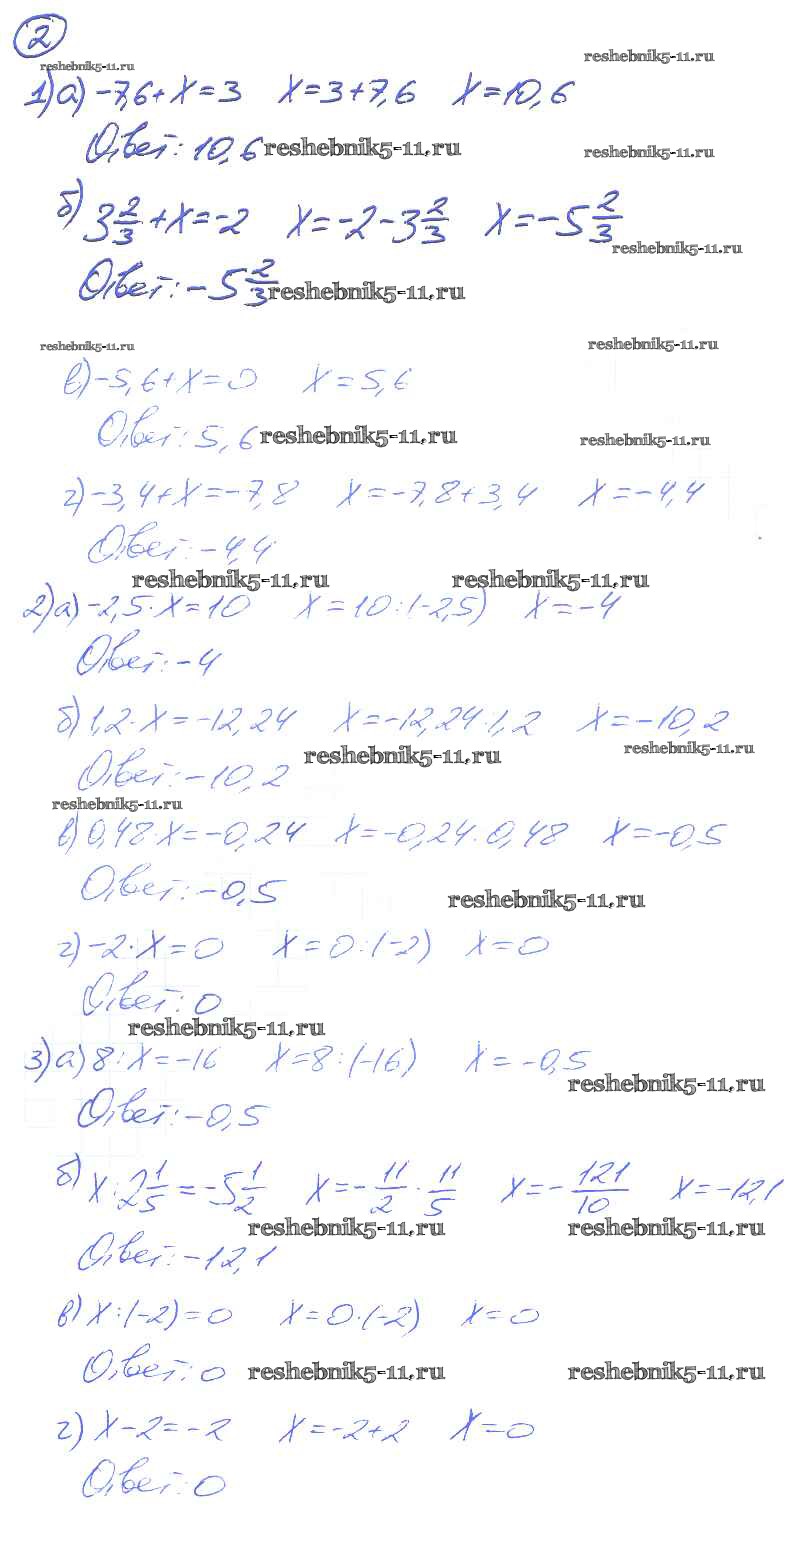 2
reshebnik5-11.ru
reshebnik5-11.ru
1) а) -7,6+x=3 x=3+7,6 x=10,6
Ответ: 10,6 reshebnik5-11.ru
reshebnik5-11.ru
б) 3 2/3 +x=-2 x=-2-3 2/3 x=-5 2/3
reshebnik5-11.ru
Ответ: -5 2/3 reshebnik5-11.ru
reshebnik5-11.ru
reshebnik5-11.ru
в) -5,6+x=0 x=5,6
Ответ: 5,6 reshebnik5-11.ru
reshebnik5-11.ru
г) -3,4+x=-7,8 x=-7,8+3,4 x=-4,4
Ответ: -4,4
reshebnik5-11.ru reshebnik5-11.ru
2) а) -2,5·x=10 x=10:(-2,5) x=-4
Ответ: -4
б) 1,2·x=-12,24 x=-12,24·1,2 x=-10,2
reshebnik5-11.ru reshebnik5-11.ru
Ответ: -10,2
reshebnik5-11.ru
в) 0,48·x=-0,24 x=-0,24·0,48 x=-0,5
Ответ: -0,5 reshebnik5-11.ru
г) -2·x=0 x=0:(-2) x=0
Ответ: 0
reshebnik5-11.ru
3) а) 8:x=-16 x=8:(-16) x=-0,5
reshebnik5-11.ru
Ответ: -0,5
б) x:2 1/5=-5 1/2 x=-11/2·11/5 x=-121/10 x=-12,1
reshebnik5-11.ru reshebnik5-11.ru
Ответ: -12,1
в) x:(-2)=0 x=0·(-2) x=0
Ответ: 0 reshebnik5-11.ru reshebnik5-11.ru
г) x-2=-2 x=-2+2 x=0
Ответ: 0